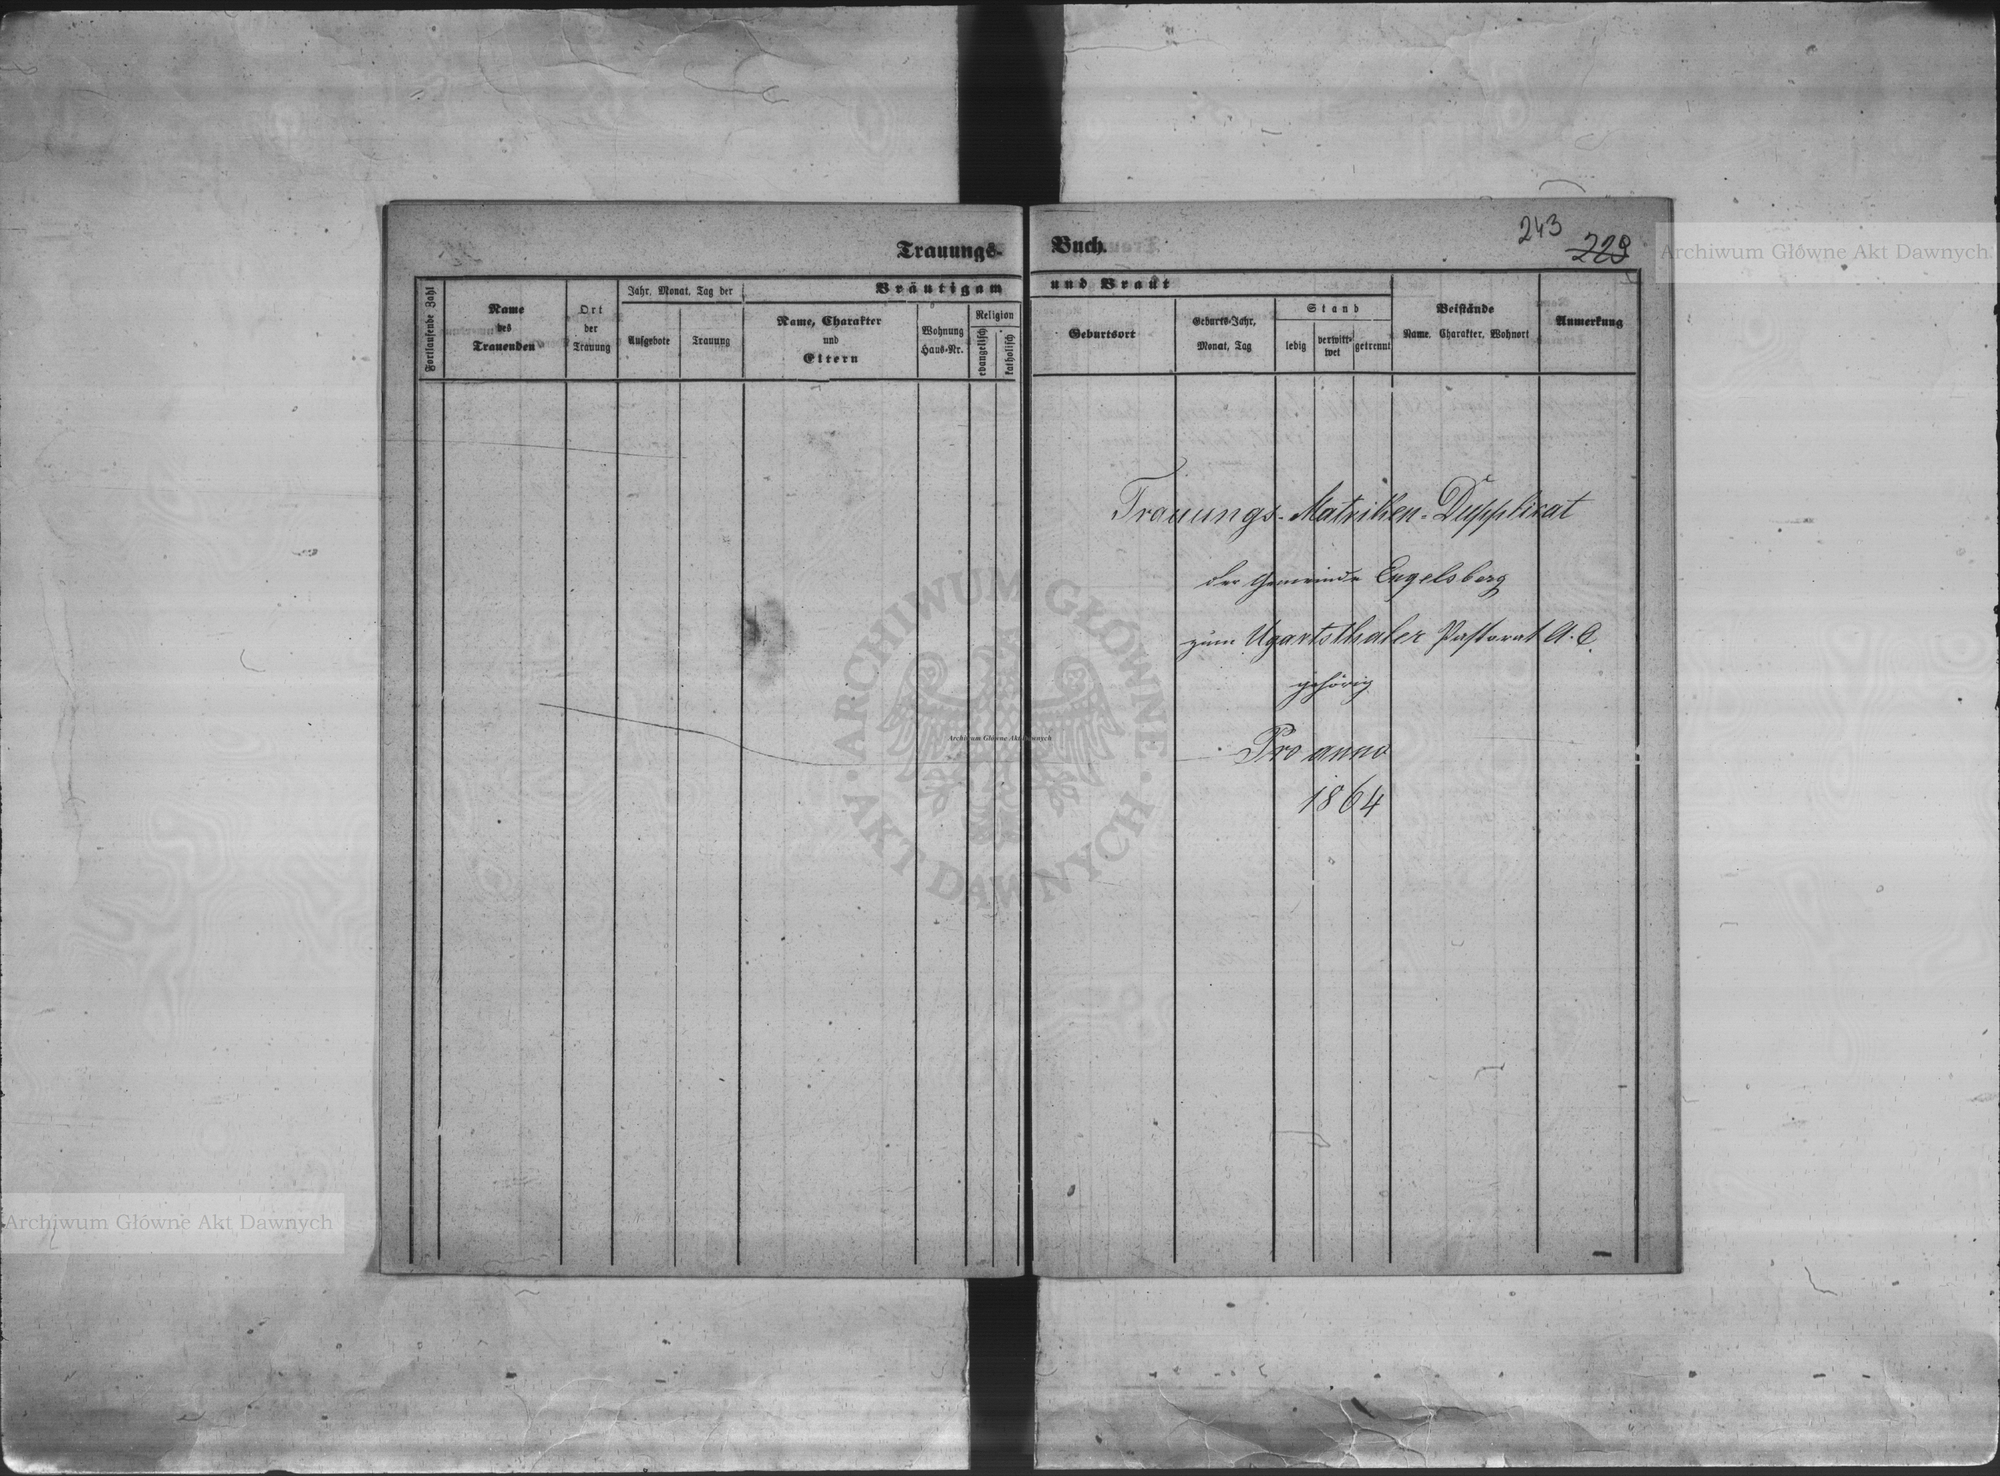 243
229
Trauungs-Buch.
Fortlaufende Zahl
Name
des
Trauenden
Ort
der
Trauung
Jahr, Monat, Tag der
Aufgebote
Trauung
Bräutigam und Braut
Name, Charakter
und
Eltern
Wohnung
Haus-Nr.
Religion
evangelisch
katholisch
Geburtsort
Geburts-Jahr,
Monat, Tag
Stand
ledig
verwitt-
wet
getrennt
Beistände
Name, Charakter, Wohnort
Anmerkung
Trauungs-Matriken-Dupplikat
der Gemeinde Engelsberg
zum Ugartsthaler Pastorat A. C.
gehörig
Pro anno
1864
Archiwum Główne Akt Dawnych
ARCHIWUM GŁÓWNE
AKT DAWNYCH
Archiwum Główne Akt Dawnych
Archiwum Główne Akt Dawnych